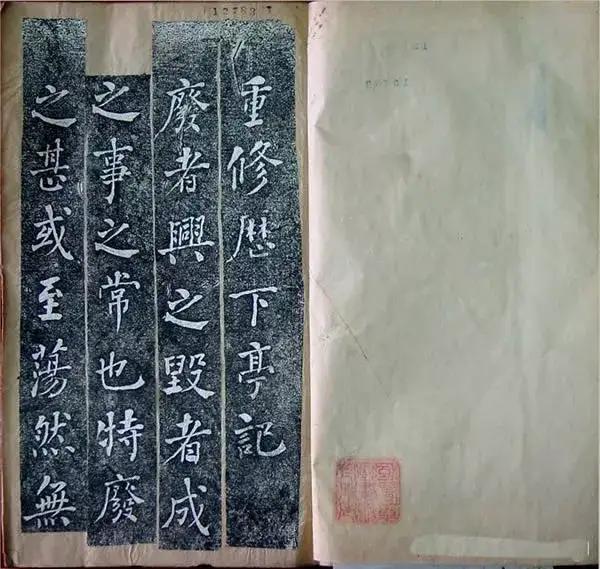 重修歴下亭記
廢者興之毀者成
之事之常也特廢
之甚或至蕩然無